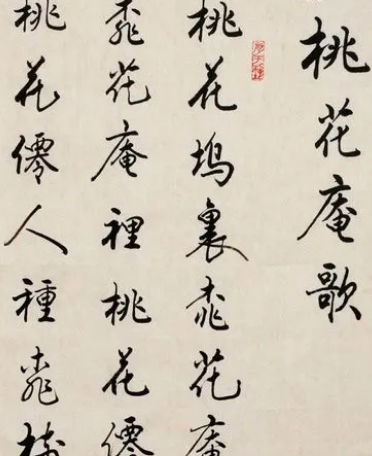 桃花庵歌
桃花塢裏桃花庵
桃花庵裡桃花僊
桃花僊人種桃樹